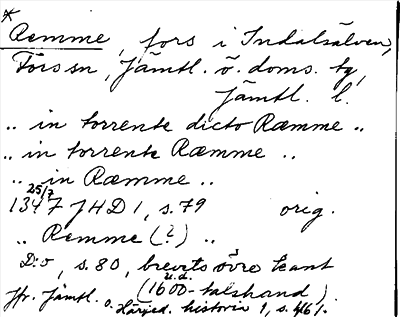 *
Remme, fors i Indalsälven,
Fors sn, Jämtl. ö. doms. tg,
Jämtl. l.
.. in torrente dicto Ræmme ..
.. in torrente Ræmme ..
.. in Ræmme ..
25/7
1347 JHD 1, s. 79 orig.
.. Remme (?) ..
D:o, s. 80, brevets övre kant
u.d. (1600-talshand)
Jfr. Jämtl. o. Härjed. historia 1, s. 461.